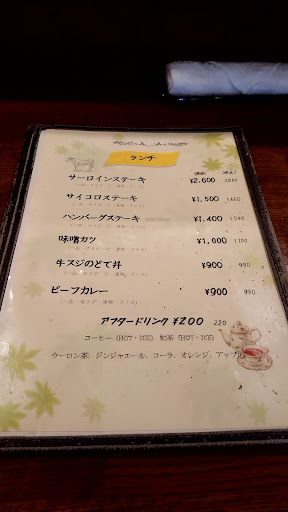 ランチ
(税抜) (税込)
サーロインステーキ ¥2,600 2860
サイコロステーキ ¥1,500 1650
ハンバーグステーキ ¥1,400 1540
味噌カツ ¥1,000 1100
牛スジのどて丼 ¥900 990
ビーフカレー ¥900 990
アフタードリンク ¥200 220
コーヒー (HOT・ICE)、紅茶 (HOT・ICE)
ウーロン茶、ジンジャエール、コーラ、オレンジ、アップル